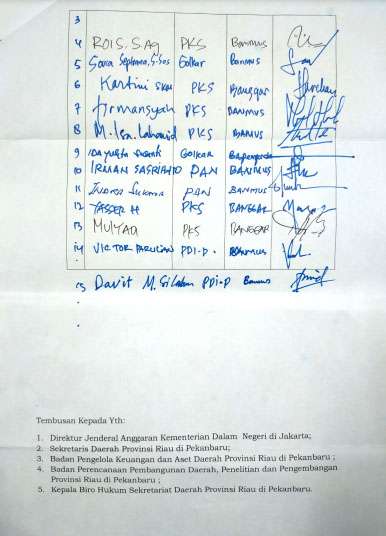 3
4 ROIS. S.Ag PKS Banmus
5 Sona Septiana, S.Sos Golkar Banmus
6 Kartini PKS Banggar
7 firmansyah PKS BANMUS
8 M. Isa. Lahamid PKS BANMUS
9 IDA Yulita Susanti GOLKAR Bapemperda
10 IRMAN SASRIANTO PAN BANMUS
11 INDRA Sukma PAN BANMUS
12 YASSER H PKS BANGGAR
13 MULYADI PKS BANGGAR
14 VICTOR PARULIAN PDI-P. BANMUS
15 Davit M. Silaban PDI-P Banmus
Tembusan Kepada Yth:
1. Direktur Jenderal Anggaran Kementerian Dalam Negeri di Jakarta;
2. Sekretaris Daerah Provinsi Riau di Pekanbaru;
3. Badan Pengelola Keuangan dan Aset Daerah Provinsi Riau di Pekanbaru ;
4. Badan Perencanaan Pembangunan Daerah, Penelitian dan Pengembangan
Provinsi Riau di Pekanbaru ;
5. Kepala Biro Hukum Sekretariat Daerah Provinsi Riau di Pekanbaru.